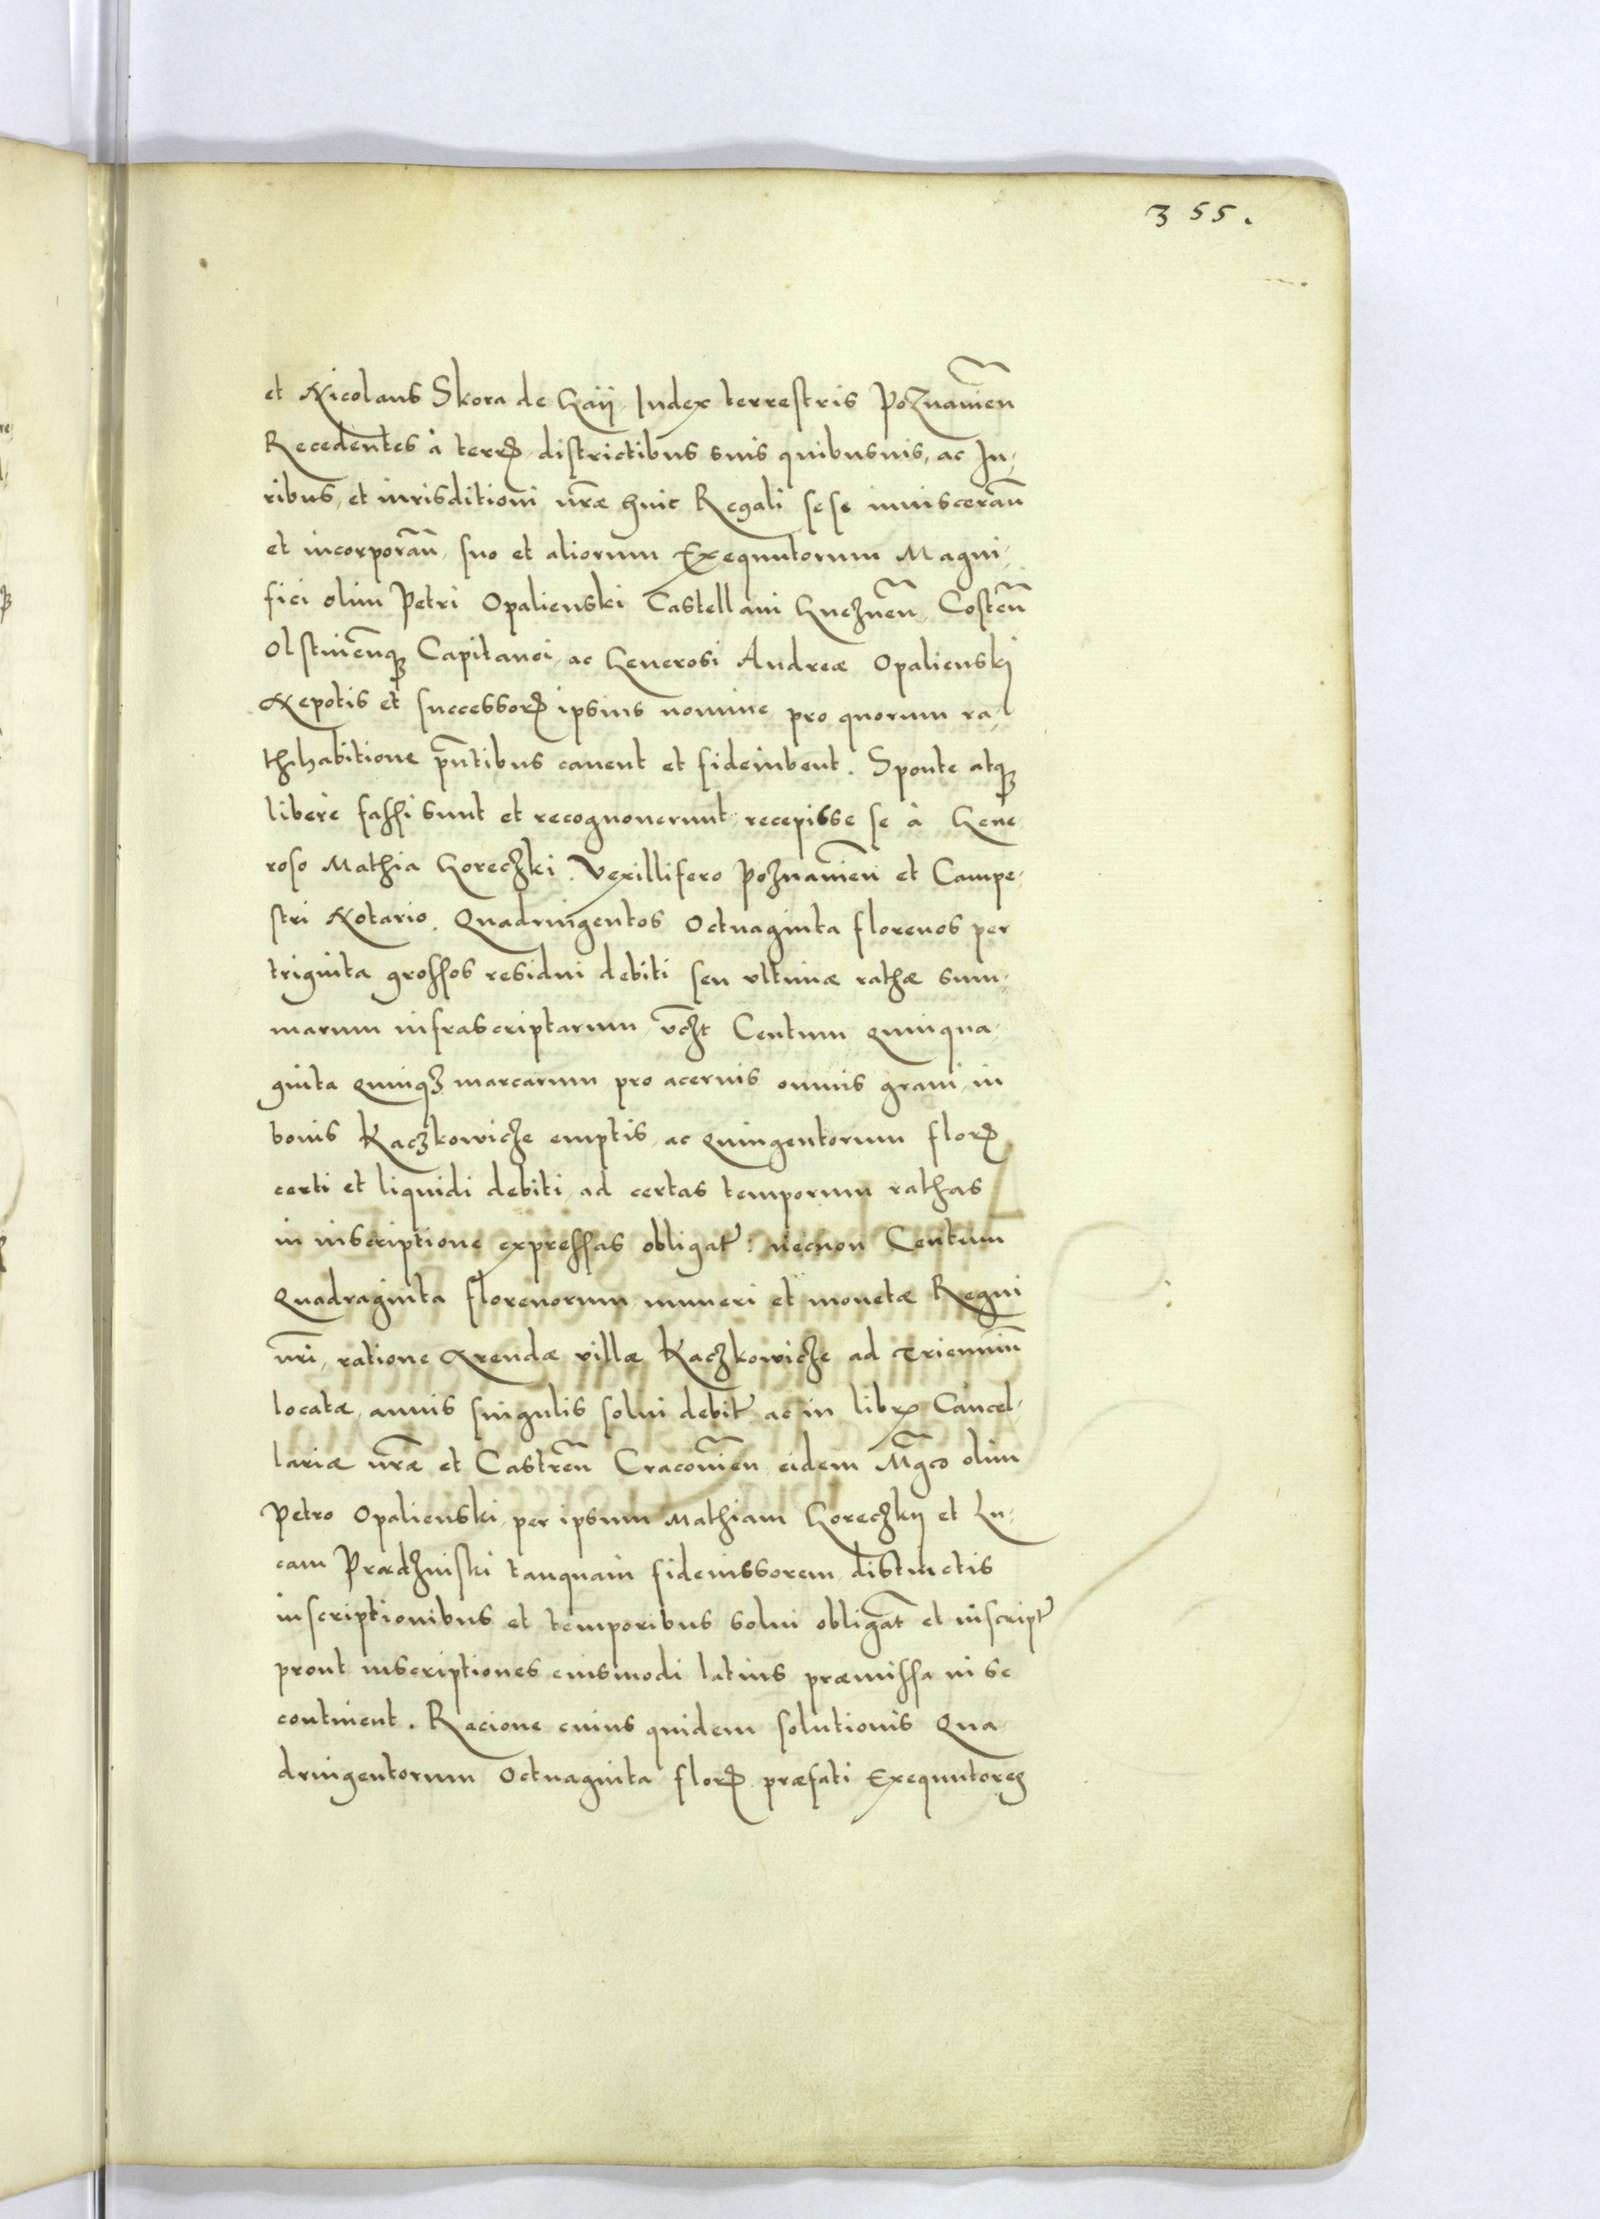 355.
et Nicolaus Skora de Gaÿ Iudex terrestris Poznanien̄
Recedentes à terr̄ districtibus suis quibusuis, ac Iu,
ribus, et iurisditioni n̄ræ huic Regali sese inuisceran̄
et incorporan̄, suo et aliorum Exequutorum Magni,
fici olim Petri Opalienski Castellani Gneznen̄, Costen̄
Olstinen̄q Capitanei, ac Generosi Andreæ Opalienskÿ
Nepotis et successor̄ ipsius nomine, pro quorum ra,
thihabitione p̄ntibus cauent et fideiubent. Sponte atq
liberè fassi sunt et recognouerunt, recepisse se à Gene,
roso Mathia Goreczki, Vexillifero Poznanien̄ et Campe,
stri Notario. Quadringentos Octuaginta florenos per
triginta grossos residui debiti seu ultimæ rathæ sum,
marum infrascriptarum, v̄czt Centum quinqua,
ginta quinqz marcarum pro aceruis omnis grani, in
bonis Kaczkowicze emptis, ac quingentorum flor̄
certi et liquidi debiti, ad certas temporum rathas
in inscriptione expressas obligat̄: necnon Centum
Quadraginta florenorum numeri et monetæ Regni
n̄ri, ratione Arendæ villæ Kaczkowicze ad Trienniū
locatæ, annis singulis solui debit̄ ac in libr̄ Cancel,
lariæ n̄ræ et Castren̄ Cracouien̄, eidem M̄gco olim
Petro Opalienski, per ipsum Mathiam Goreczkÿ et Lu,
cam Prædzinski tanquam fideiussorem, distinctis
inscriptionibus et temporibus solui obligat̄ et inscript̄
prout inscriptiones eiusmodi latius præmissa in se
continent. Racione cuius quidem solutionis Qua,
dringentorum Octuaginta flor̄ præfati Exequutores